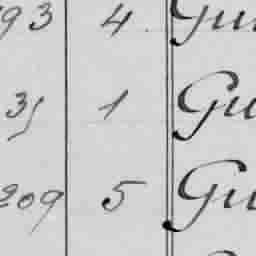 93 4 Gu
35 1 Gu
209 5 Gu